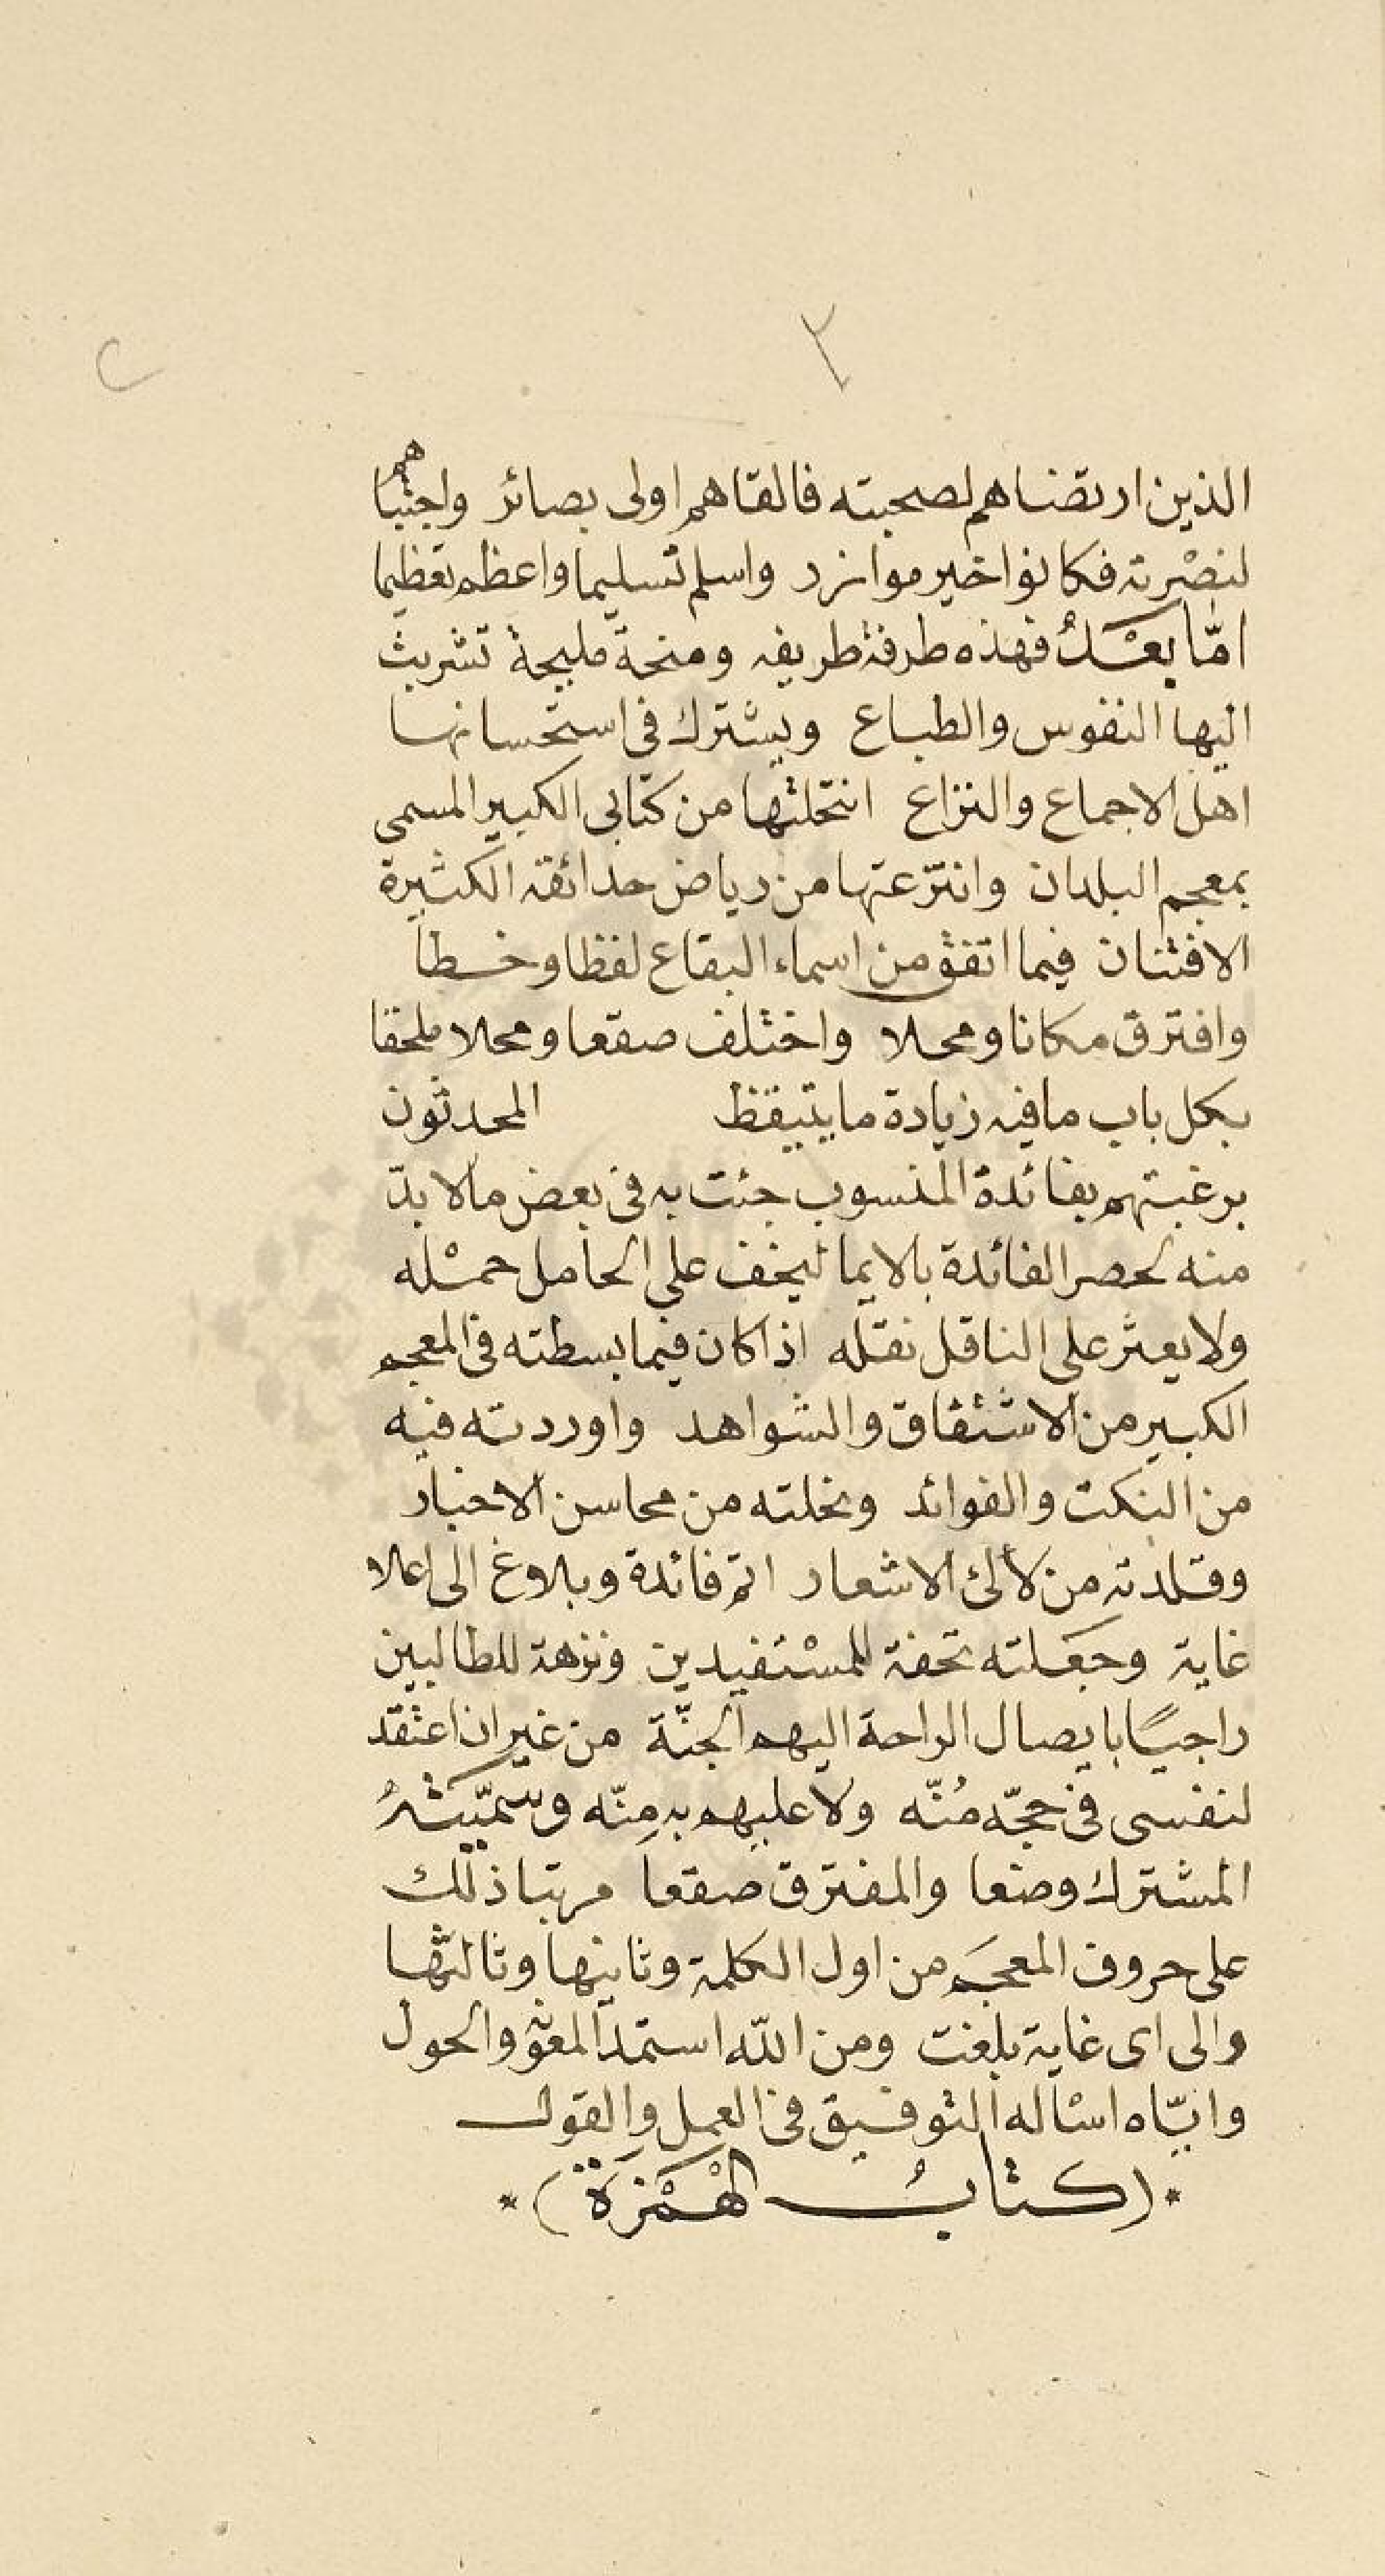 ٢
الذين ارتضناهم لصحبته فالقاهم اولى بصائر واجتباهم
لنصْرته فكانوا خير موازر واسلم تسليما واعظم تعظيما
امّا بعْدُ فهذه طرفة طريفه ومنحة مليحة تشربت
اليها النفوس والطباع ويشترك فى استحسانها
اهل الاجماع والنزاع انتحلتها من كتابى الكبير المسمى
بمعجم البلدان وانتزعتها من رياض حدائقه الكثيرة
الافتنان فيما اتفق من اسماء البقاع لفظا وخطا
وافترق مكانا ومحلا واختلف صقعا ومحلا ملحقا
بكل باب ما فيه زيادة ما يتيقظ المحدثون
برغبتهم بفائدة المنسوب جئت به فى بعض ما لا بدّ
منه لحصر الفائدة بالايما ليخف على الحامل حمْله
ولا يعثر على الناقل نقله اذا كان فيما بسطته فى المعجم
الكبير من الاشتقاق والشواهد واوردته فيه
من النكت والفوائد ونخلته من محاسن الاخبار
وقلدته من لآلئ الاشعار اتم فائدة وبلاوغ الى اعلا
غاية وجعلته تحفة للمسْتفيدين ونزهة للطالبين
راجيًا بايصال الراحة اليهم الجنّة من غير ان اعتقد
لنفسى فى حجّه مُنّه ولا عليهم به مِنّه وسمّيته
المشترك وضعا والمفترق صقعا مرتبا ذلك
على حروف المعجَم من اول الكلمة وثانيها وثالثها
والى اى غاية بلغت ومن اللّه استمد المعونة والحول
وايّاه اسْاله التوفيق فى العمل والقول
*(كتابُ الهمْزَة)*